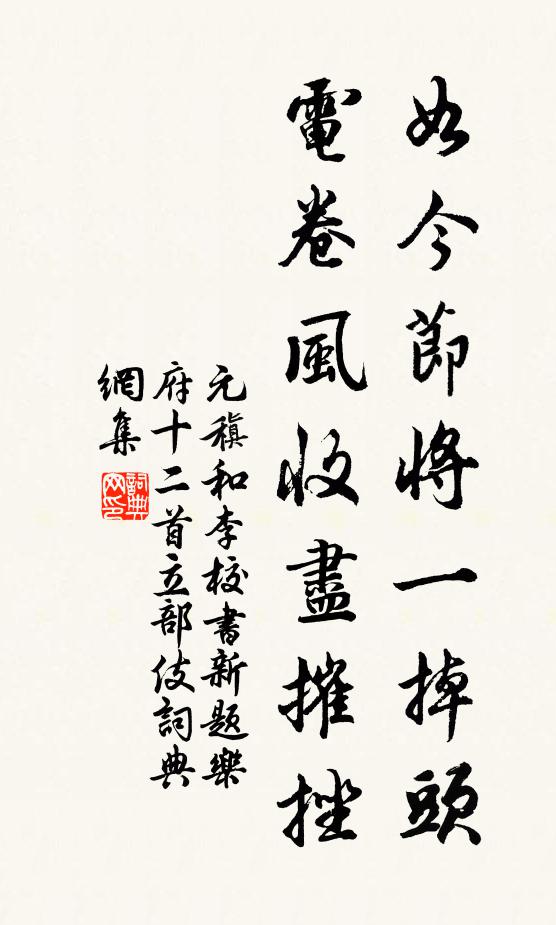 如今節將一掉頭
電卷風收盡摧挫
元稹和李校書新題樂
府十二首立部伎詞典
網集
詞典網印